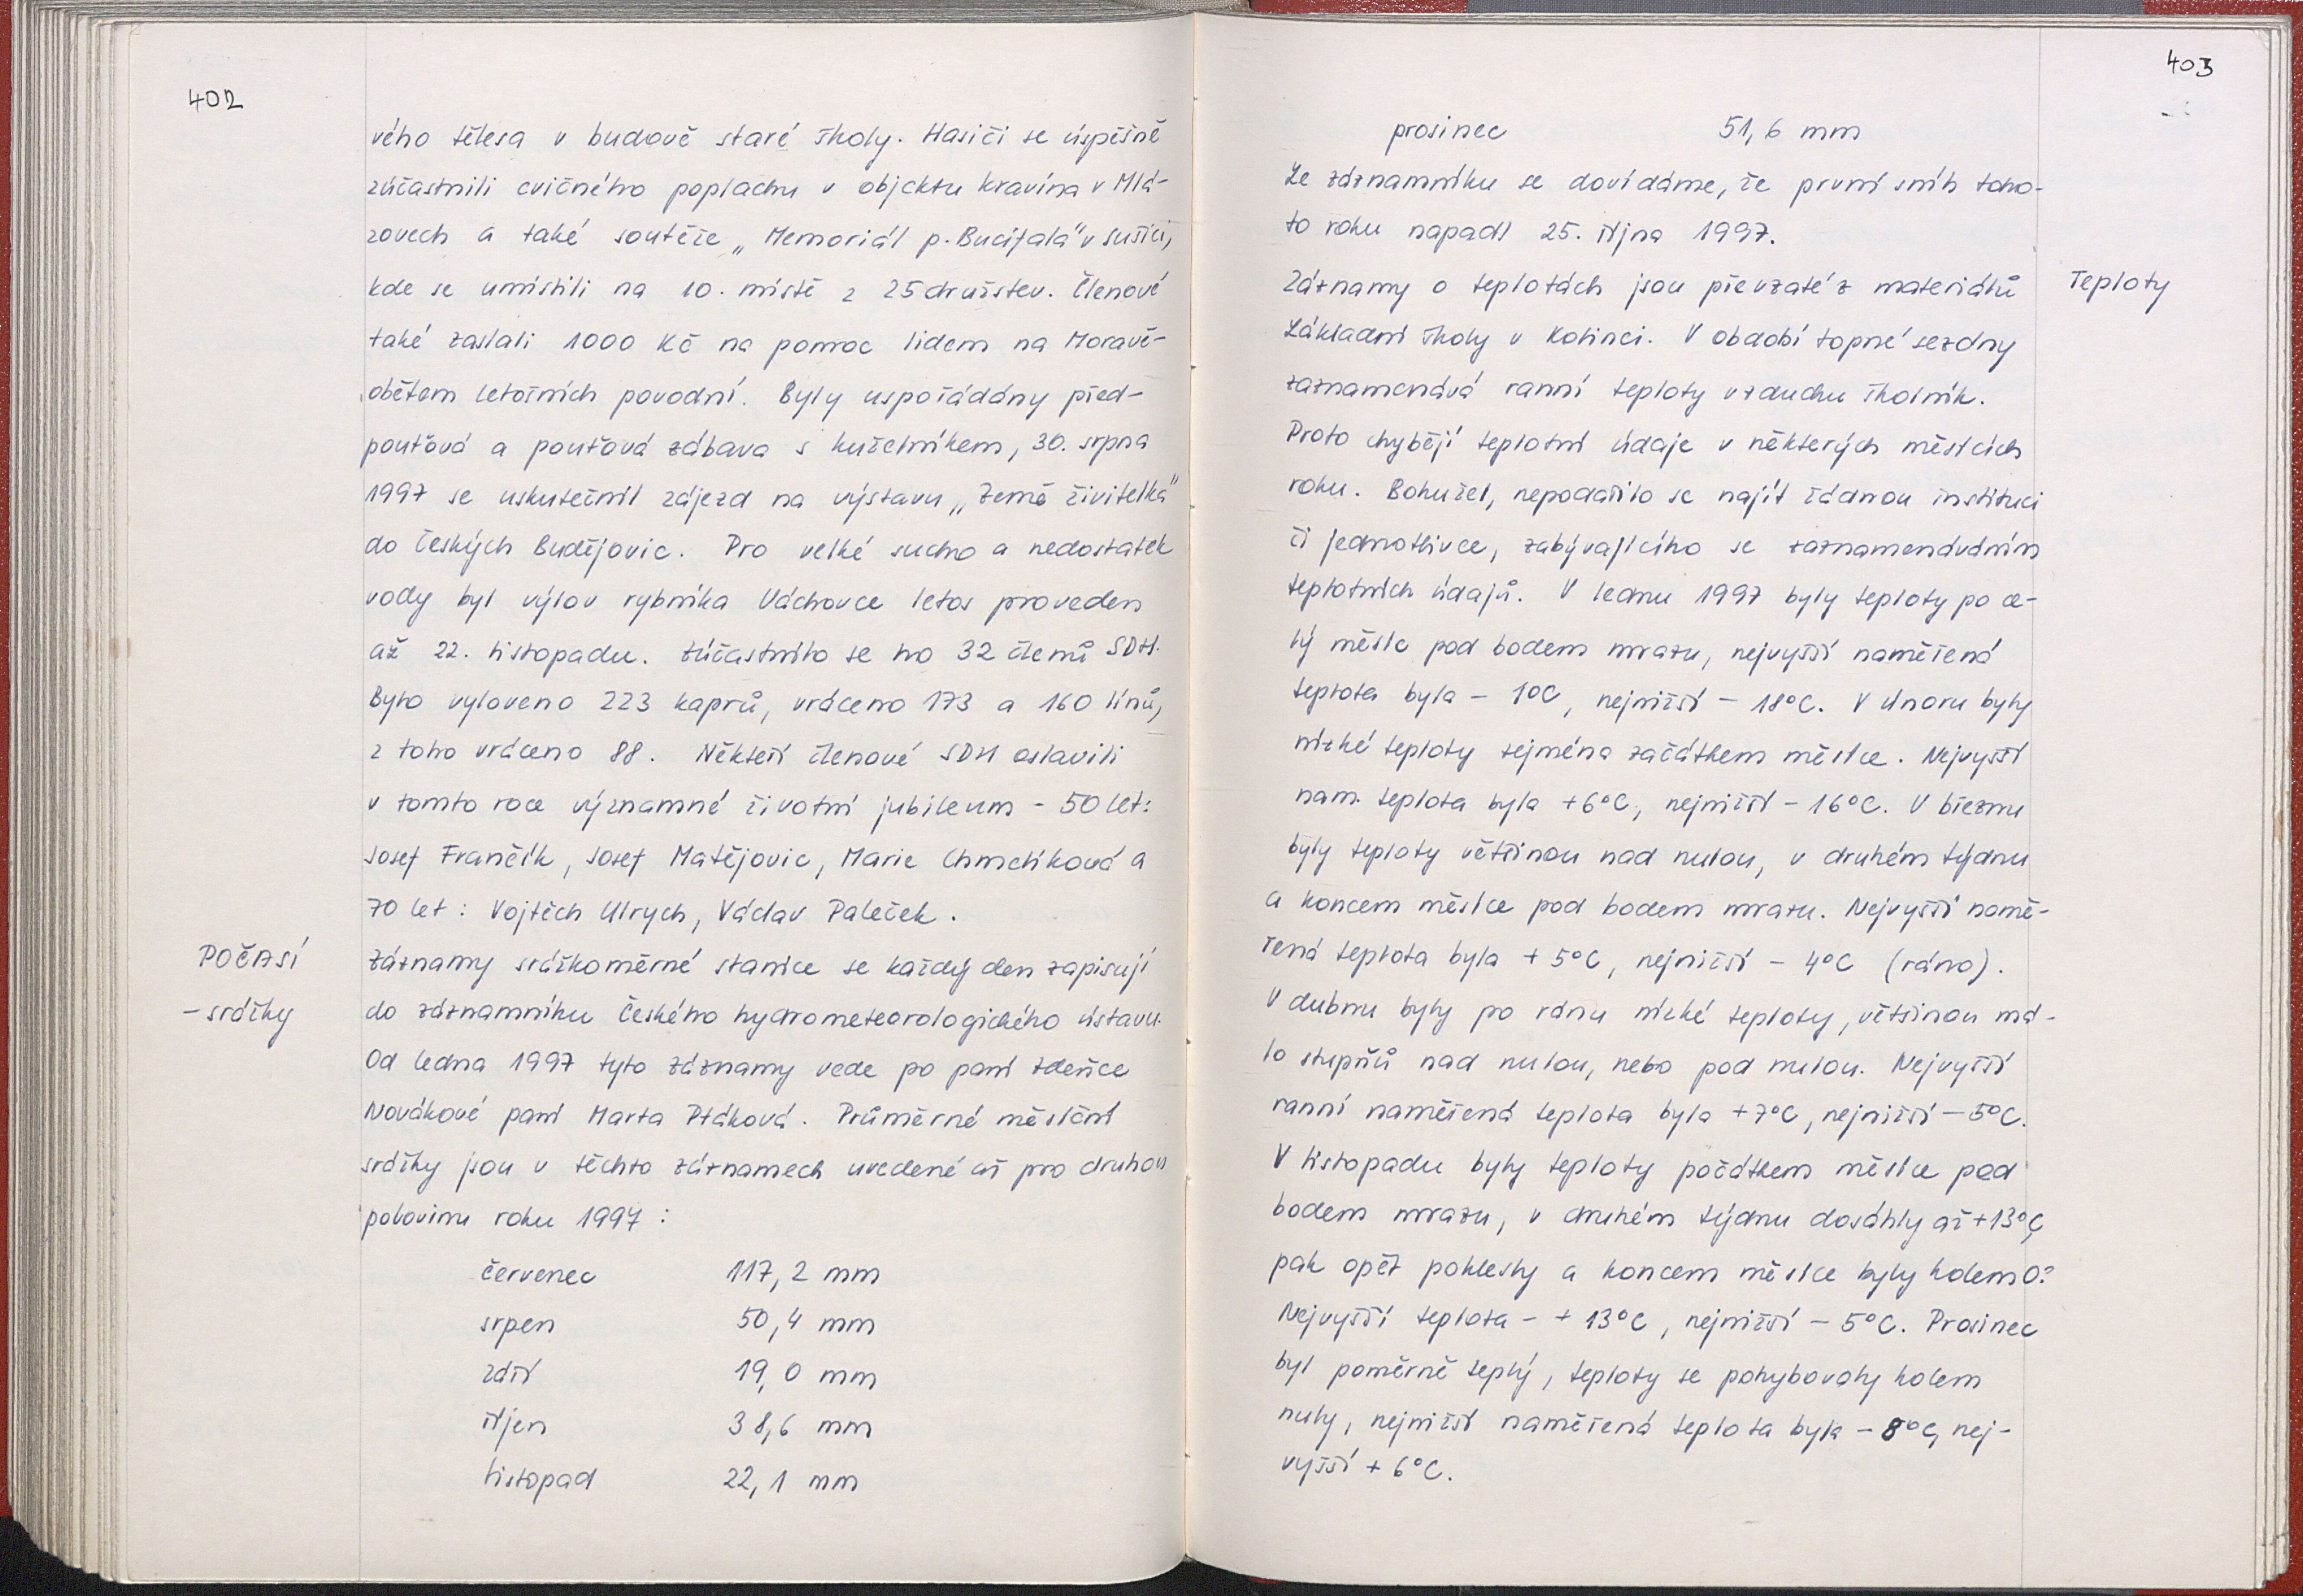 402
vého tělesa v budově staré školy. Hasiči se úspěšně
zúčastnili cvičného poplachu v objektu kravína v Mlá-
zovech a také soutěže „Memoriál p. Bucifala" v Sušici,
kde se umístili na 10. místě z 25 družstev. Členové
také zaslali 1000 Kč na pomoc lidem na Moravě-
obětem letošních povodní. Byly uspořádány před-
pouťová a pouťová zábava s kuželníkem, 30. srpna
1997 se uskutečnil zájezd na výstavu „Země živitelka"
do Českých Budějovic. Pro velké sucho a nedostatek
vody byl výlov rybníka Váchovce letos proveden
až 22. listopadu. Zúčastnilo se ho 32 členů SDH.
Bylo vyloveno 223 kaprů, vráceno 173 a 160 línů,
z toho vráceno 88. Někteří členové SDH oslavili
v tomto roce významné životní jubileum - 50 let:
Josef Frančík, Josef Matějovic, Marie Chmelíková a
70 let: Vojtěch Ulrych, Václav Paleček.
POČASÍ
- srážky
Záznamy srážkoměrné stanice se každý den zapisují
do záznamníku Českého hydrometeorologického ústavu.
Od ledna 1997 tyto záznamy vede po paní Zdeňce
Novákové paní Marta Ptáková. Průměrné měsíční
srážky jsou v těchto záznamech uvedené až pro druhou
polovinu roku 1997:
červenec 117,2 mm
srpen 50,4 mm
září 19,0 mm
říjen 38,6 mm
listopad 22,1 mm
403
prosinec 51,6 mm
Ze záznamníku se dovídáme, že první sníh toho-
to roku napadl 25. října 1997.
Teploty
Záznamy o teplotách jsou převzaté z materiálů
Základní školy v Kolinci. V období topné sezóny
zaznamenává ranní teploty vzduchu školník.
Proto chybějí teplotní údaje v některých měsících
roku. Bohužel, nepodařilo se najít žádnou instituci
či jednotlivce, zabývajícího se zaznamenáváním
teplotních údajů. V lednu 1997 byly teploty po ce-
lý měsíc pod bodem mrazu, nejvyšší naměřená
teplota byla - 1°C, nejnižší - 18°C. V únoru byly
nízké teploty zejména začátkem měsíce. Nejvyšší
nam. teplota byla +6°C, nejnižší - 16°C. V březnu
byly teploty většinou nad nulou, v druhém týdnu
a koncem měsíce pod bodem mrazu. Nejvyšší namě-
řená teplota byla + 5°C, nejnižší - 4°C (ráno).
V dubnu byly po ránu nízké teploty, většinou má-
lo stupňů nad nulou, nebo pod nulou. Nejvyšší
ranní naměřená teplota byla +7°C, nejnižší - 5°C.
V listopadu byly teploty počátkem měsíce pod
bodem mrazu, v druhém týdnu dosáhly až +13°C,
pak opět poklesly a koncem měsíce byly kolem 0°.
Nejvyšší teplota - + 13°C, nejnižší - 5°C. Prosinec
byl poměrně teplý, teploty se pohybovaly kolem
nuly, nejnižší naměřená teplota byla - 8°C, nej-
vyšší + 6°C.